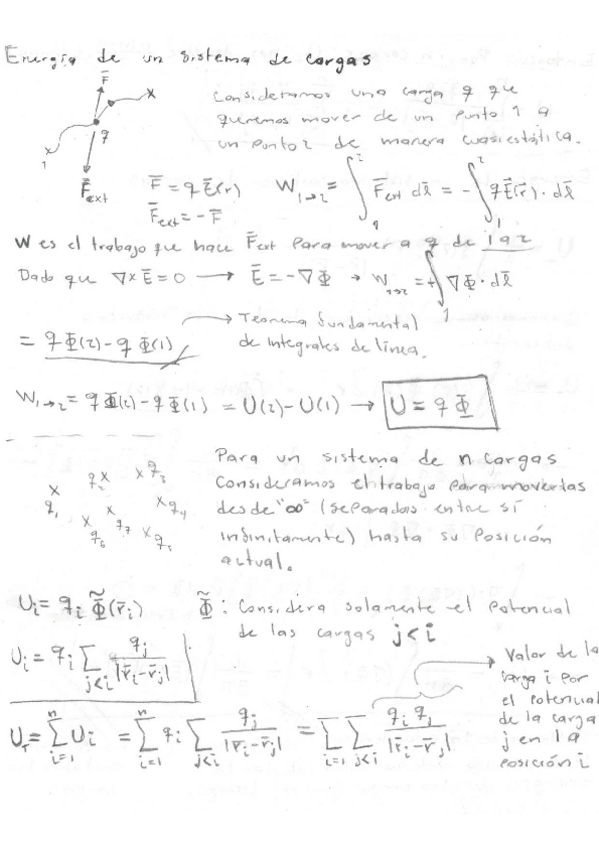 Energía de un sistema de cargas
F̄
x
q
1
F̄ext
Consideramos una carga q que
queremos mover de un punto 1 a
un punto 2 de manera cuasiestática.
F̄ = qĒ(r)
F̄ext = -F̄
W₁→₂ = ∫₁² F̄ext dl̄ = -∫₁² qĒ(r̄)·dl̄
W es el trabajo que hace F̄ext para mover a q de 1 a 2
Dado que ∇×Ē = 0 → Ē = -∇Φ → W₁→₂ = +∫₁² ∇Φ·dl̄
= qΦ(2) - qΦ(1)
→ Teorema fundamental
de integrales de línea.
W₁→₂ = qΦ(2) - qΦ(1) = U(2) - U(1) → U = qΦ
x q₁ q₂ x x q₃ x q₄ x q₅ x q₆ x q₇
Para un sistema de n cargas
Consideramos el trabajo para moverlas
desde "∞" (separadas entre sí
infinitamente) hasta su posición
actual.
Uᵢ = qᵢ Φ̃(r̄ᵢ)
Φ̃: Considera solamente el potencial
de las cargas j<i
Uᵢ = qᵢ ∑_{j<i} qⱼ/|r̄ᵢ-r̄ⱼ|
→ Valor de la
carga i por
el potencial
de la carga
j en la
posición i
U_T = ∑_{i=1}^{n} Uᵢ = ∑_{i=1}^{n} qᵢ ∑_{j<i} qⱼ/|r̄ᵢ-r̄ⱼ| = ∑_{i=1} ∑_{j<i} qᵢqⱼ/|r̄ᵢ-r̄ⱼ|